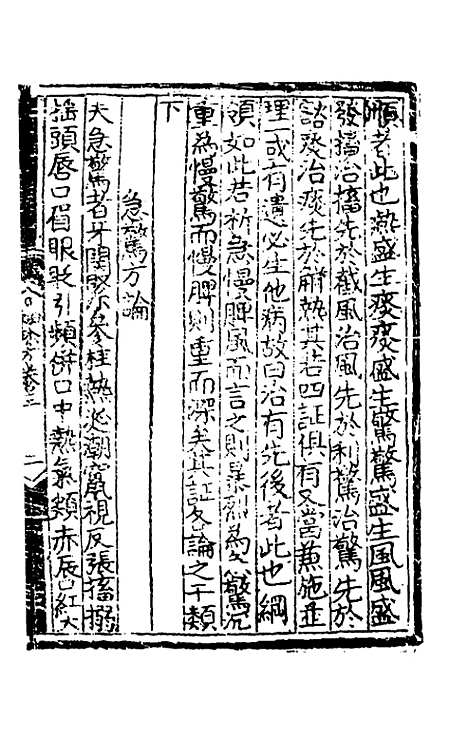 順者此也熱盛生痰痰盛生驚驚盛生風風盛
發搐治搐先於截風治風先於利驚治驚先於
豁痰治痰先於解熱其若四証俱有又當兼施並
理一或有遺必生他病故曰治有先後者此也綱
領如此若析急慢脾風而言之則暴烈為急驚沉
重為慢驚而慢脾則重而深矣其証各論之于類
下
急驚方論
夫急驚者牙關緊急壯熱涎潮竄視反張搐搦
搖頭唇口眉眼眨引頻併口中熱氣頰赤唇紅大
二